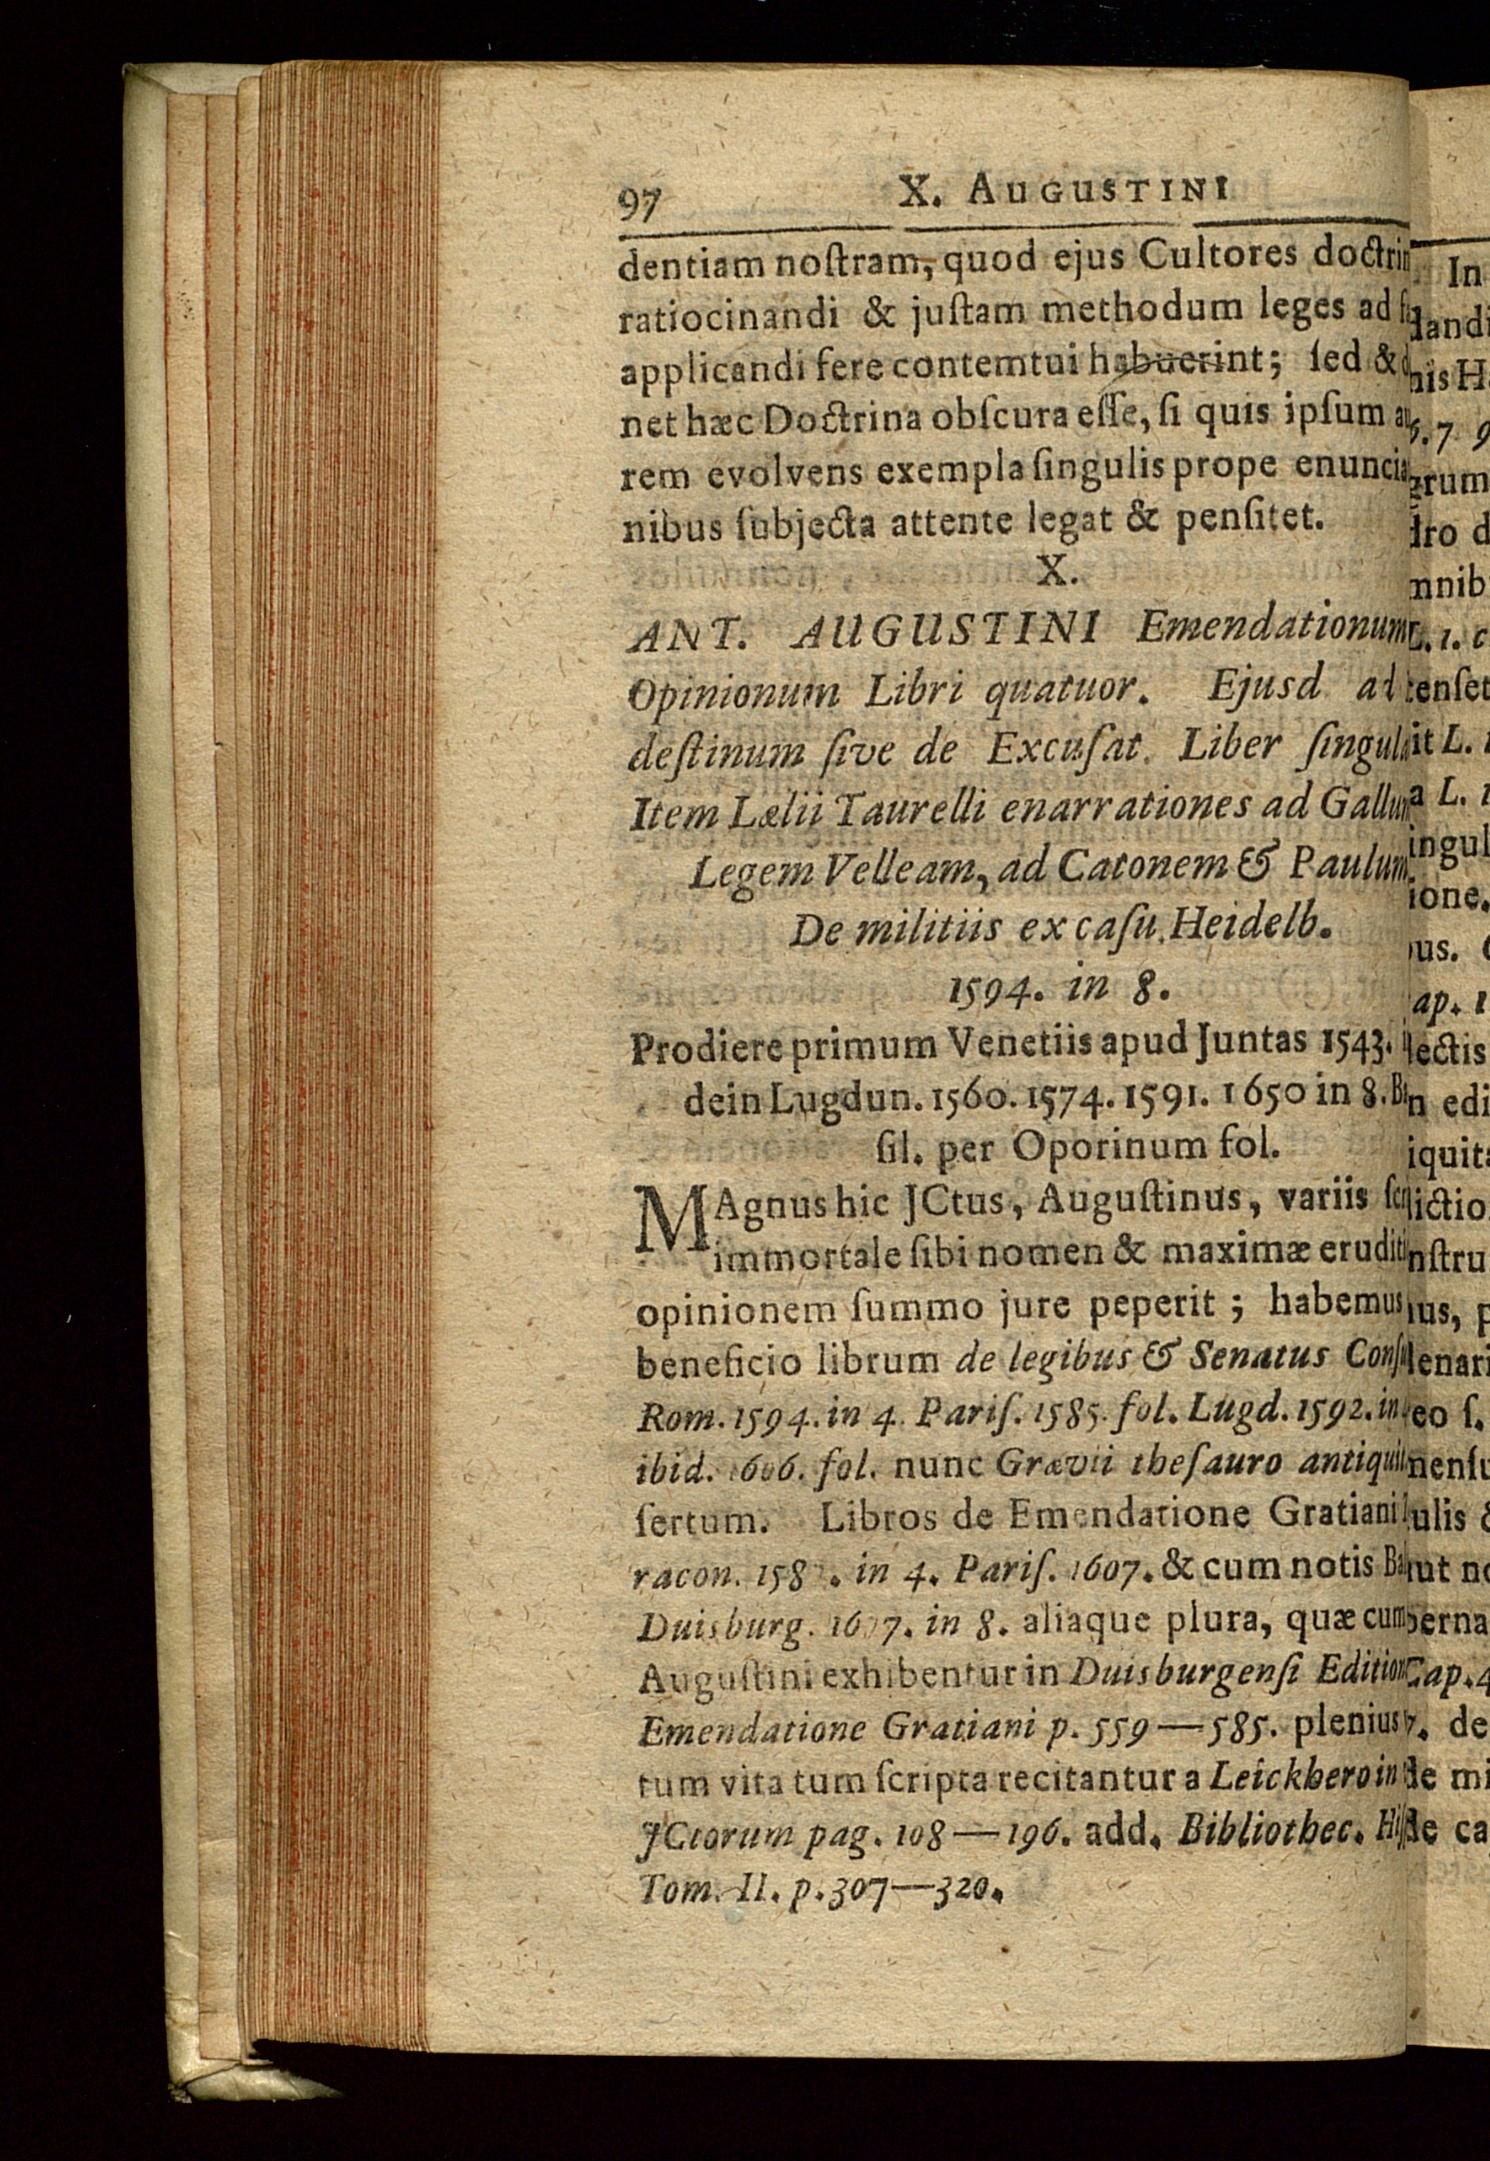 97 X. AUGUSTINI
dentiam noſtram, quod ejus Cultores
ratiocinandi & juſtam methodum leges ad
applicandi fere contemtui habuerint; ſed &
net hæc Doctrina obſcura eſſe, ſi quis ipſum
rem evolvens exempla ſingulis prope
nibus ſubjecta attente legat & penſitet.
X.
ANT. AUGUSTINI Emendationum
Opinionum Libri quatuor. Ejusd ad
deſtinum ſive de Excuſat. Liber
Item Lælii Taurelli enarrationes ad Gallum
Legem Velleam, ad Catonem & Paulum.
De militiis ex caſu. Heidelb.
1594. in 8.
Prodiere primum Venetiis apud Juntas 1543.
dein Lugdun. 1560. 1574. 1591. 1650 in 8.
ſil. per Oporinum fol.
MAgnus hic JCtus, Auguſtinus, variis
immortale ſibi nomen & maximæ
opinionem ſummo jure peperit; habemus
beneficio librum de legibus & Senatus
Rom. 1594. in 4. Pariſ. 1585. fol. Lugd. 1592. in
ibid. 1606. fol. nunc Grævii theſauro
ſertum. Libros de Emendatione Gratiani
racon. in 4. Pariſ. 1607. & cum notis
Duisburg. in 8. aliaque plura, quæ cum
Auguſtini exhibentur in Duisburgenſi
Emendatione Gratiani p. 559—585. plenius
tum vita tum ſcripta recitantur a Leickhero in
JCtorum pag. 108—196. add. Bibliothec.
Tom. II. p. 307—320.
In